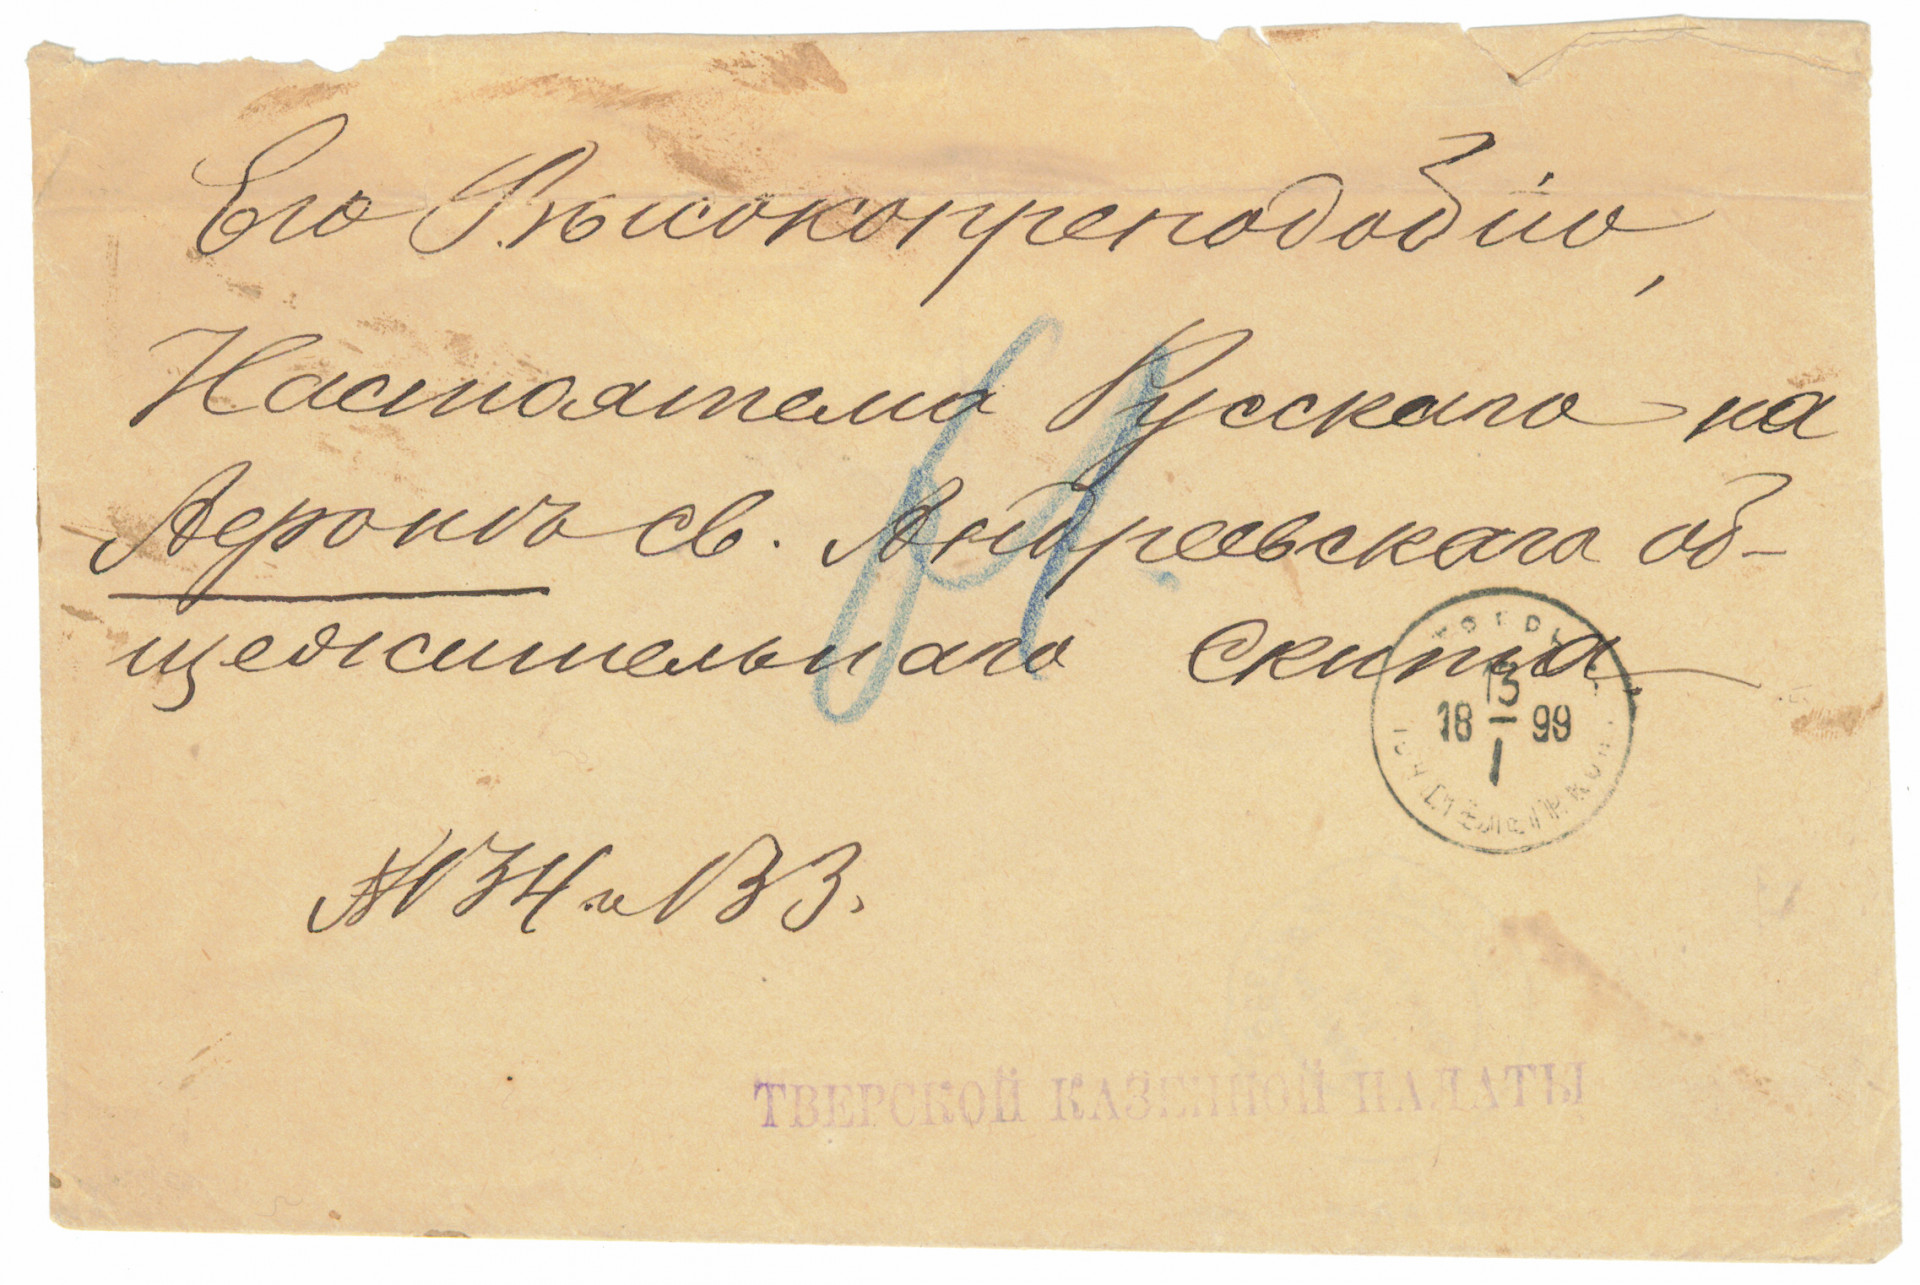 Его Высокопреподобію,
Настоятелю Русскаго на
Аѳонѣ св. Андреевскаго об-
щежительнаго скита.
13
18 99
I
№ 34 и 133.
ТВЕРСКОЙ КАЗЕННОЙ ПАЛАТЫ